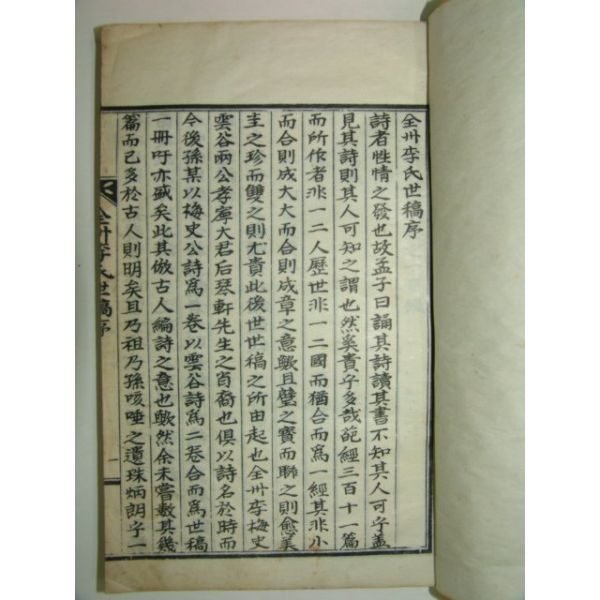 全州李氏世稿序
詩者性情之發也故孟子曰誦其詩讀其書不知其人可乎蓋
見其詩則其人可知之謂也然奚貴乎多哉葩經三百十一篇
而所作者非一二人歷世非一二國而猶合而爲一經其非小
而合則成大大而合則成章之意歟且璧之寶而聯之則愈美
圭之珍而雙之則尤貴此後世世稿之所由起也全州李梅史
雲谷兩公孝寧大君后琴軒先生之肖裔也俱以詩名於時而
今後孫某以梅史公詩爲一卷以雲谷詩爲二卷合而爲世稿
一冊吁亦盛矣此其倣古人編詩之意也歟然余未嘗數其幾
篇而已多於古人則明矣且乃祖乃孫咳唾之遺珠炳朗乎一
全州李氏世稿序
一